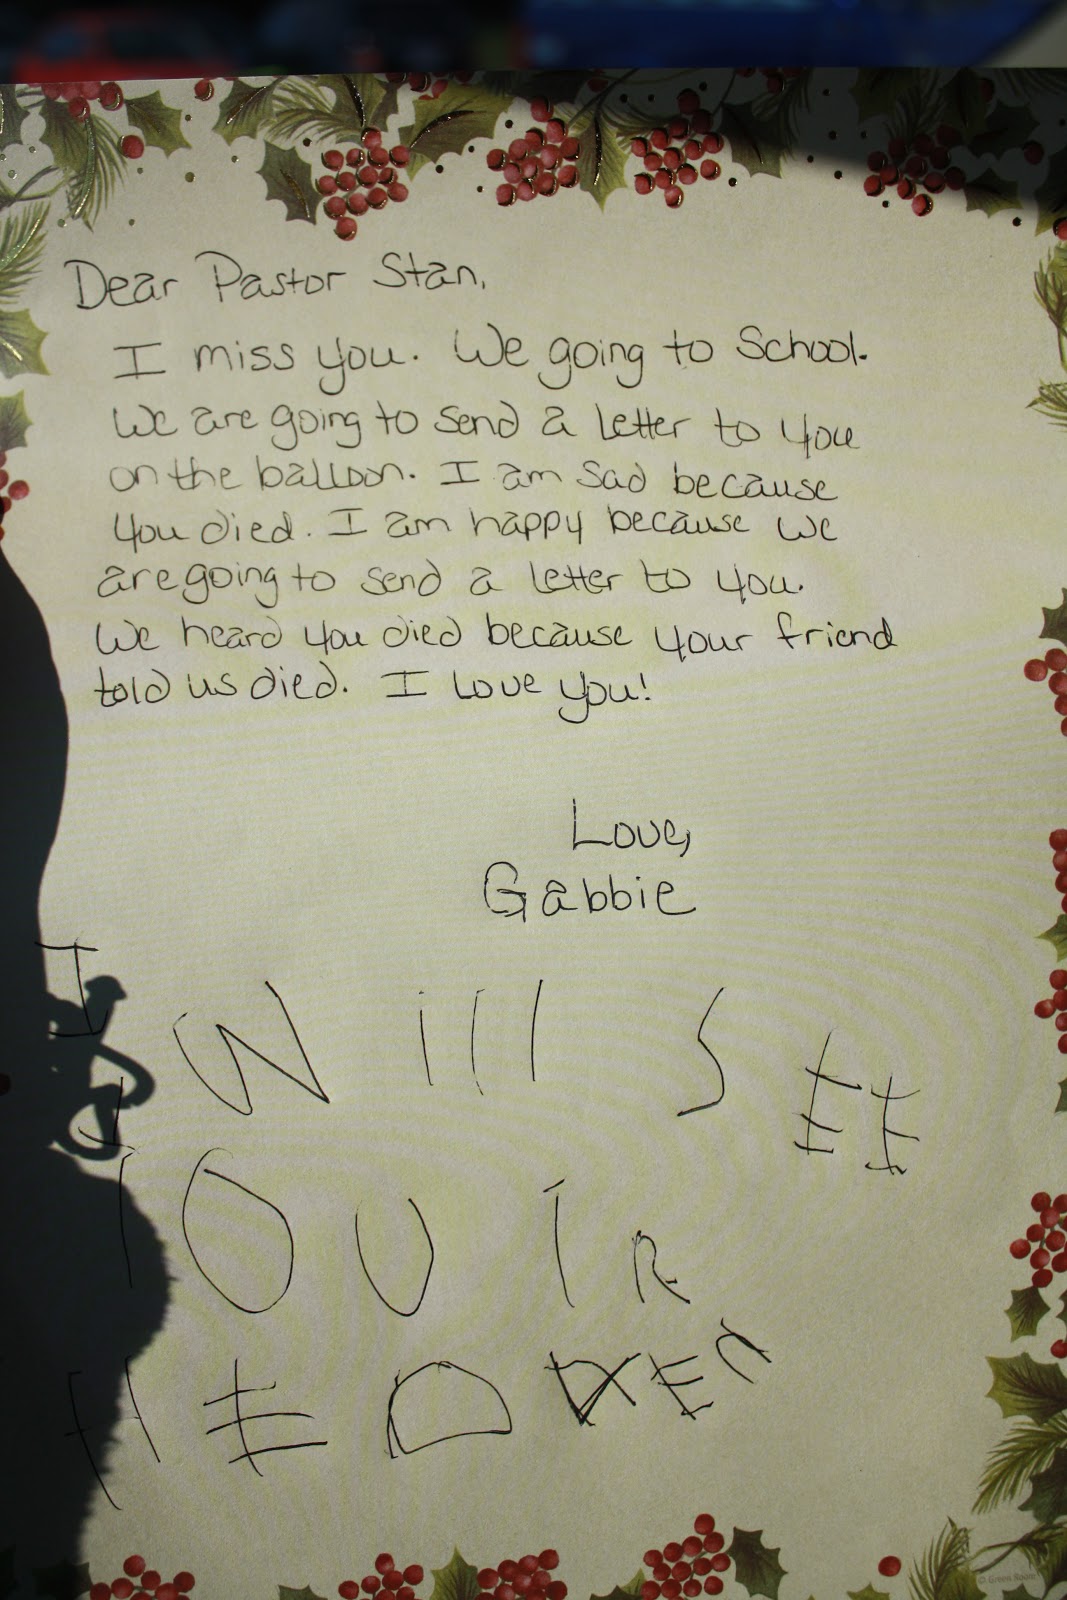 Dear Pastor Stan,
I miss you. We going to School.
We are going to send a letter to you
on the balloon. I am sad because
you died. I am happy because we
are going to send a letter to you.
We heard you died because your friend
told us died. I love you!
Love,
Gabbie
I will SEE
YOU IR
HEAVEN